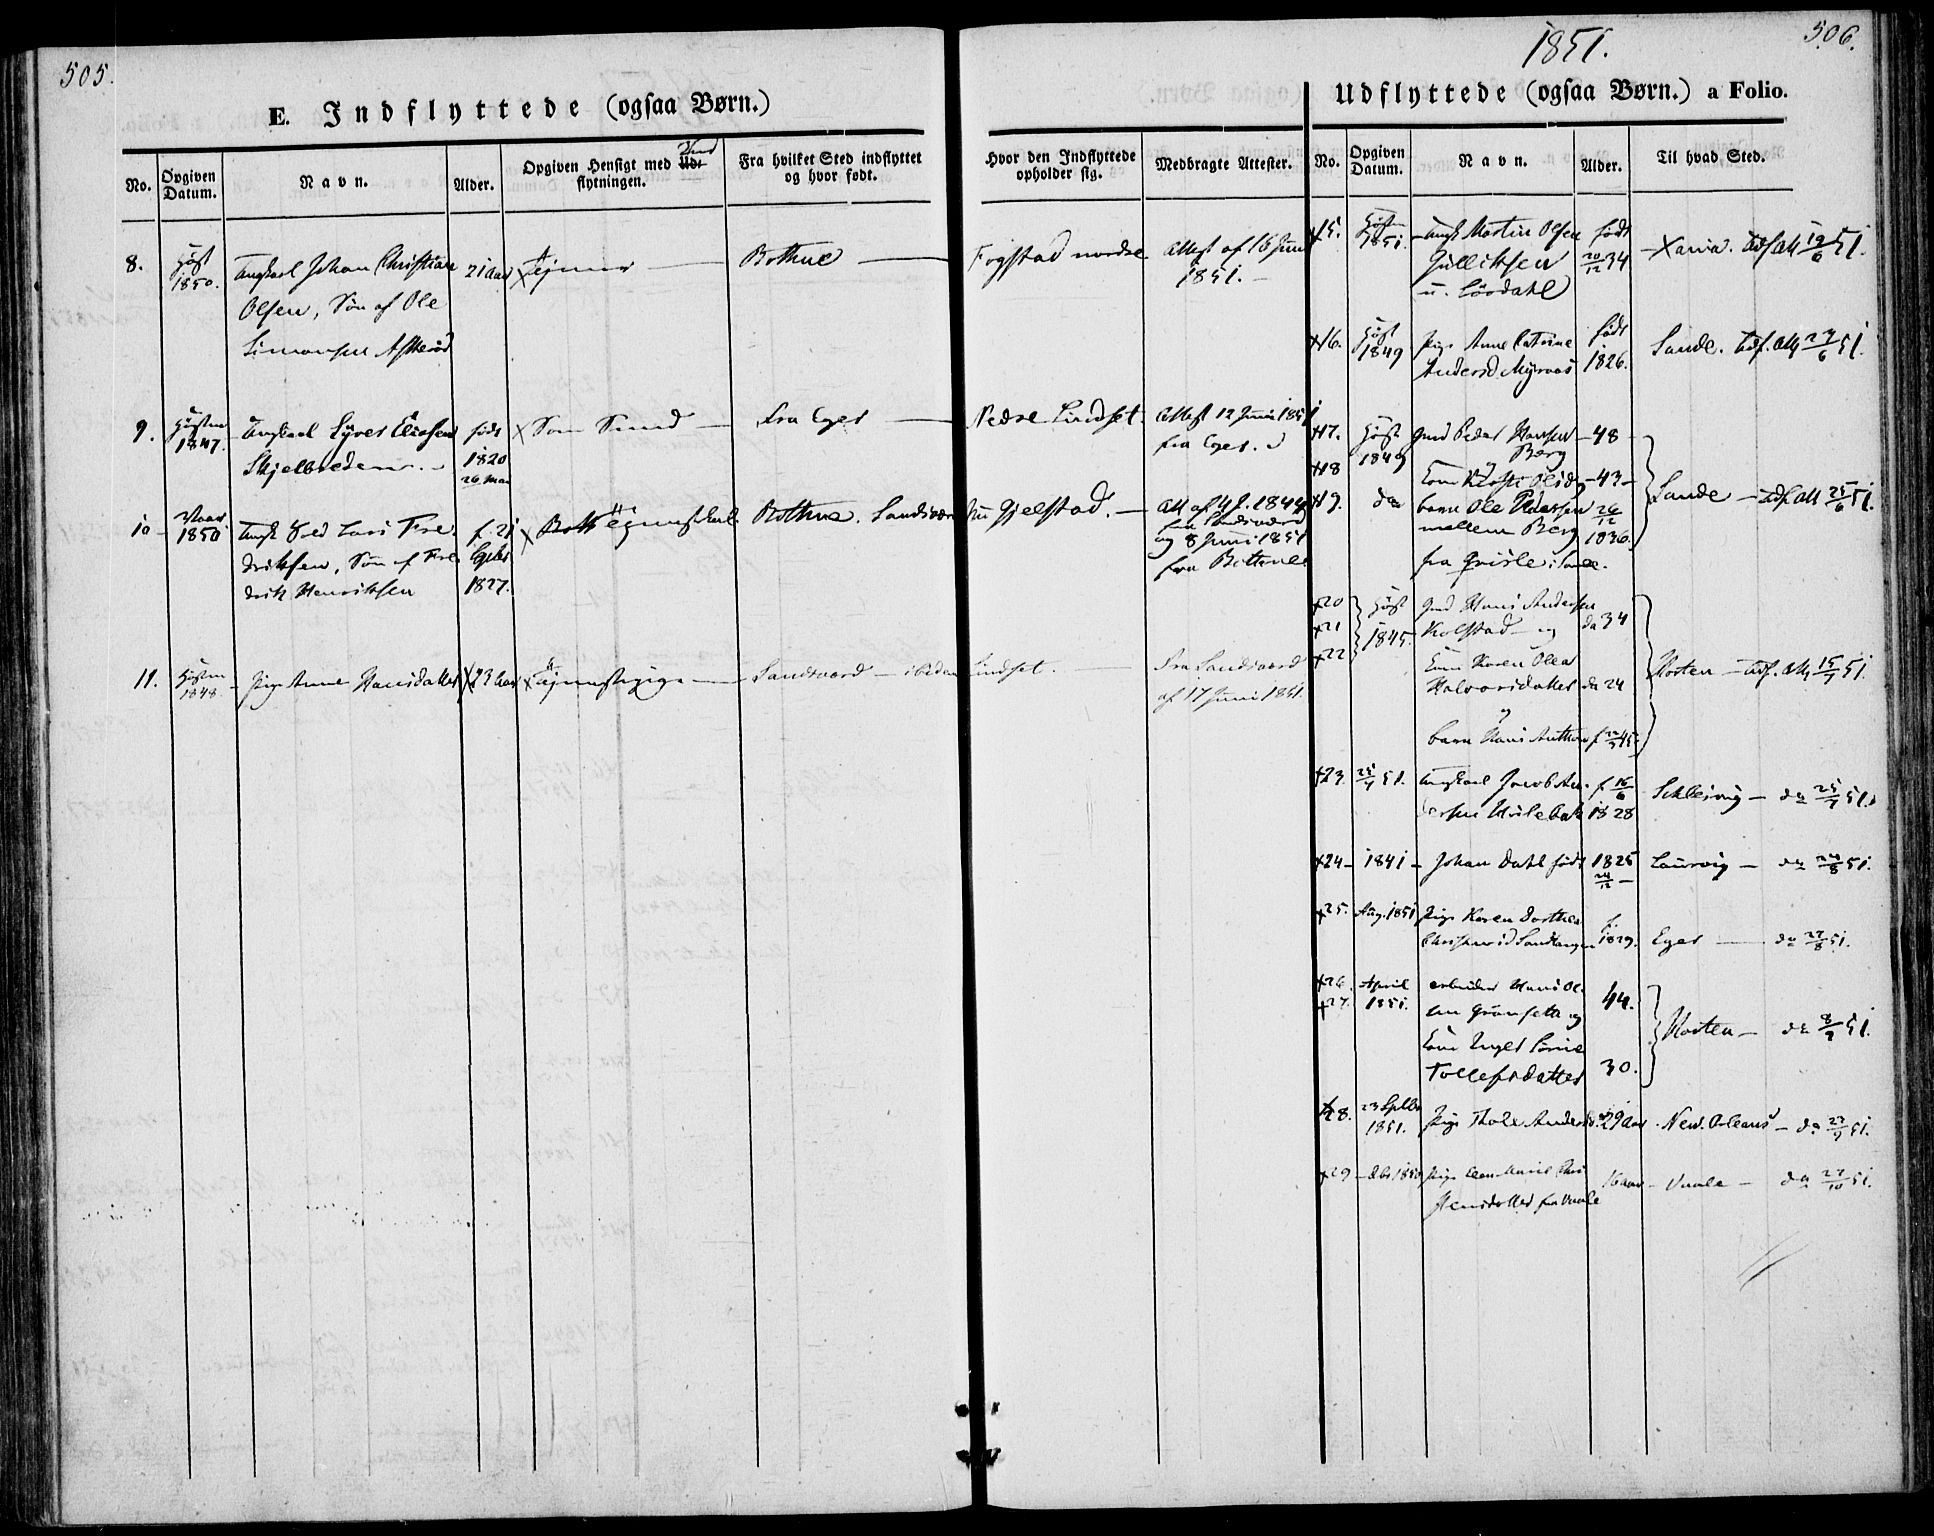 505.
E. Indflyttede (ogsaa Børn.)
No.
Opgiven Datum.
Navn.
Alder.
Opgiven Hensigt med Ud=
Ind
flytningen.
Fra hvilket Sted indflyttet
og hvor født.
Hvor den Indflyttede
opholder sig.
Medbragte Attester.
8.
Høst
1850.
Ungkarl Johan Christian
Olsen, Søn af Ole
Simonsen
21 Aar
Tjener
Bothne
Fogstad nordre
Attest af 16 Juni
1851.
9.
Høsten
1847.
Ungkarl Syver Eliasen
født
1820
26 Mai
Som Smed
Fra Eger
Nedre Lindset.
Attest 12 Juni 1851
fra Eger.
10
Vaar
1850
Ungk Lars Fre-
driksen, Søn af Fre-
drik Henriksen
f. 21
Septbr
1827.
Bothne. Sandsvær
Gjelstad.
1844
fra Sandsværd
og 8 Juni 1851
fra Bothne
11.
Høsten
1848.
Pige Anne Hansdatter
23 Aar
Tjenestepige
Sandsværd - ibidem
Lindset.
fra Sandsværd
af 17 Juni 1851.
1851.
506.
Udflyttede (ogsaa Børn.) a Folio.
No.
Opgiven Datum.
Navn.
Alder.
Til hvad Sted.
15.
Høst
1851.
Ungk Martin Olsen
Gulliksen
u. Lørdahl
født
20/12 34
Xania. Udf. Att 19/6 51.
16.
Høst
1849
Pige Anne Catrine
Andersd. Myraas
født
1826.
Sande. Udf. Att 24/6 51.
17.
Høst
1849
Gmd Peder Hansen
Berg
48
18
Olsd
43
19.
do
barn Ole Pedersen
mellem Berg
fra i Sande.
26/12
1836.
Sande - Udf. Att 25/6 51.
20
21
22
Høst
1845.
Gmd Hans Andersen
Kolstad og
34
Kone Karen Olea
Halvorsdatter
24
og
barn Hans Anthon
Horten - Udf. Att 15/7 51.
23.
25/7 51.
Ungkarl Jacob An-
dersen Hvilebak
f 16/6
1828
Schlesvig - do 25/7 51.
24
1841
Johan Dahl født
1825
24/12
Laurvig - do 24/8 51.
25.
Aug. 1851
Pige Karen Dorthea
f.
1829.
Eger - do 27/8 51.
26.
27.
April
1851.
arbeider Hans Ol-
sen og
44.
Kone Inger Sørine
Tollefsdatter
30.
Horten - do 8/9 51.
28.
23 Septbr
1851.
Pige Thale Andersd.
29 Aar
New. Orleans - do 23/9 51.
29
1850
Pige Marie Chri
stensdatter fra Vaale
16 aar
Vaale - do 27/10 51.